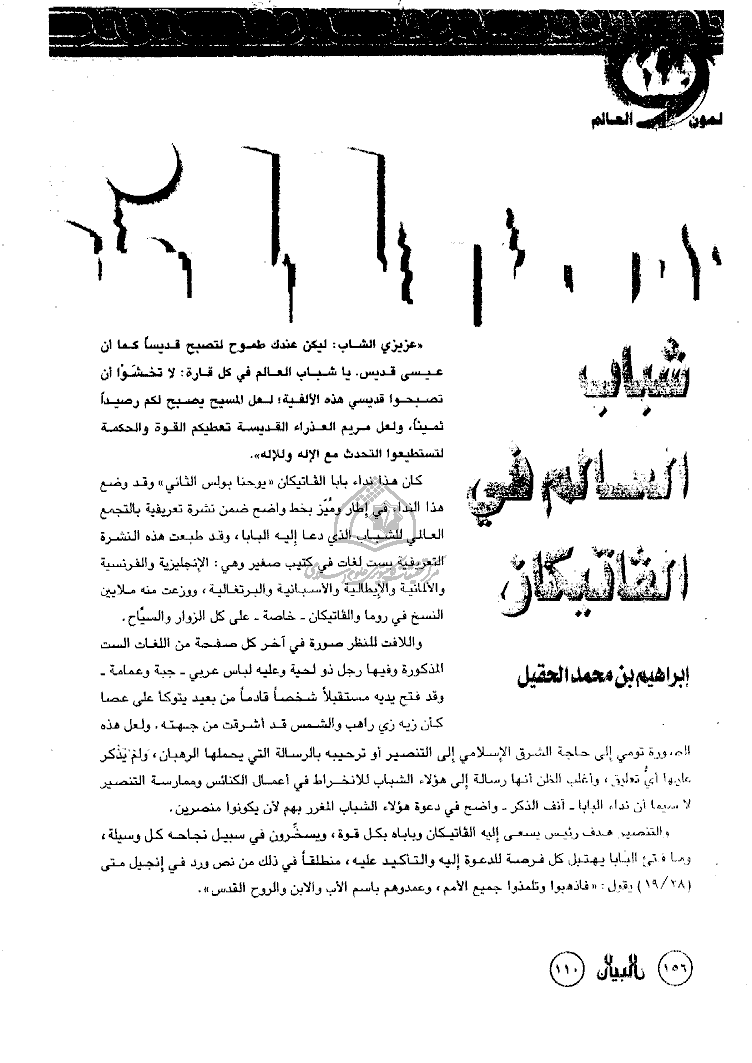 لمون العالم
شباب
العالم في
الڤاتيكان
إبراهيم بن محمد الحقيل
«عزيزي الشاب: ليكن عندك طموح لتصبح قديساً كما أن
عيسى قديس. يا شباب العالم في كل قارة: لا تخشَوْا أن
تصبحوا قديسي هذه الألفية؛ لعل المسيح يصبح لكم رصيداً
ثميناً، ولعل مريم العذراء القديسة تعطيكم القوة والحكمة
لتستطيعوا التحدث مع الإله وللإله».
كان هذا نداء بابا الڤاتيكان «يوحنا بولس الثاني» وقد وضع
هذا النداء في إطار ومُيّز بخط واضح ضمن نشرة تعريفية بالتجمع
العالمي للشباب الذي دعا إليه البابا، وقد طبعت هذه النشرة
التعريفية بست لغات في كتيب صغير وهي: الإنجليزية والفرنسية
والألمانية والإيطالية والأسبانية والبرتغالية، ووزعت منه ملايين
النسخ في روما والڤاتيكان ـ خاصة ـ على كل الزوار والسيَّاح.
واللافت للنظر صورة في آخر كل صفحة من اللغات الست
المذكورة وفيها رجل ذو لحية وعليه لباس عربي ـ جبة وعمامة ـ
وقد فتح يديه مستقبلاً شخصاً قادماً من بعيد يتوكأ على عصا
كأن زيه زي راهب والشمس قد أشرقت من جهته، ولعل هذه
الصورة تومي إلى حاجة الشرق الإسلامي إلى التنصير أو ترحيبه بالرسالة التي يحملها الرهبان، ولم يُذكر
عليها أيُّ تعليق، وأغلب الظن أنها رسالة إلى هؤلاء الشباب للانخراط في أعمال الكنائس وممارسة التنصير
لا سيما أن نداء البابا ـ آنف الذكر ـ واضح في دعوة هؤلاء الشباب المغرر بهم لأن يكونوا منصرين.
والتنصير هدف رئيس يسعى إليه الڤاتيكان وباباه بكل قوة، ويسخِّرون في سبيل نجاحه كل وسيلة،
وما فتئ البابا يهتبل كل فرصة للدعوة إليه والتأكيد عليه، منطلقاً في ذلك من نص ورد في إنجيل متى
(١٩/٢٨) يقول: «فاذهبوا وتلمذوا جميع الأمم، وعمدوهم باسم الأب والابن والروح القدس».
١٥٦ البيان ١١٠